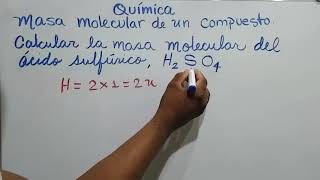 Química
Masa molecular de un compuesto.
Calcular la masa molecular del
ácido sulfúrico, H₂SO₄
H = 2 x 1 = 2u